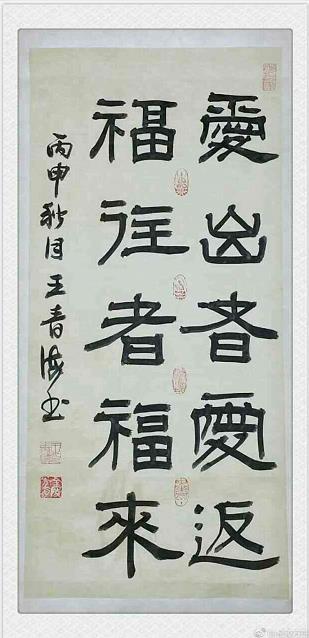 愛出者愛返
福往者福來
丙申秋月王青海书